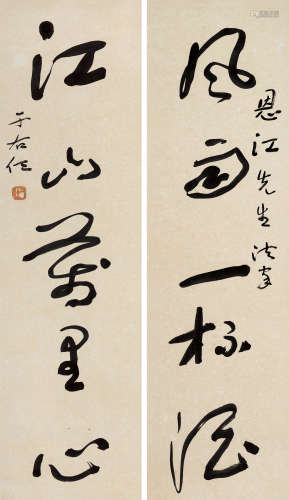 風雨一杯酒
恩江先生法家
江山萬里心
于右任